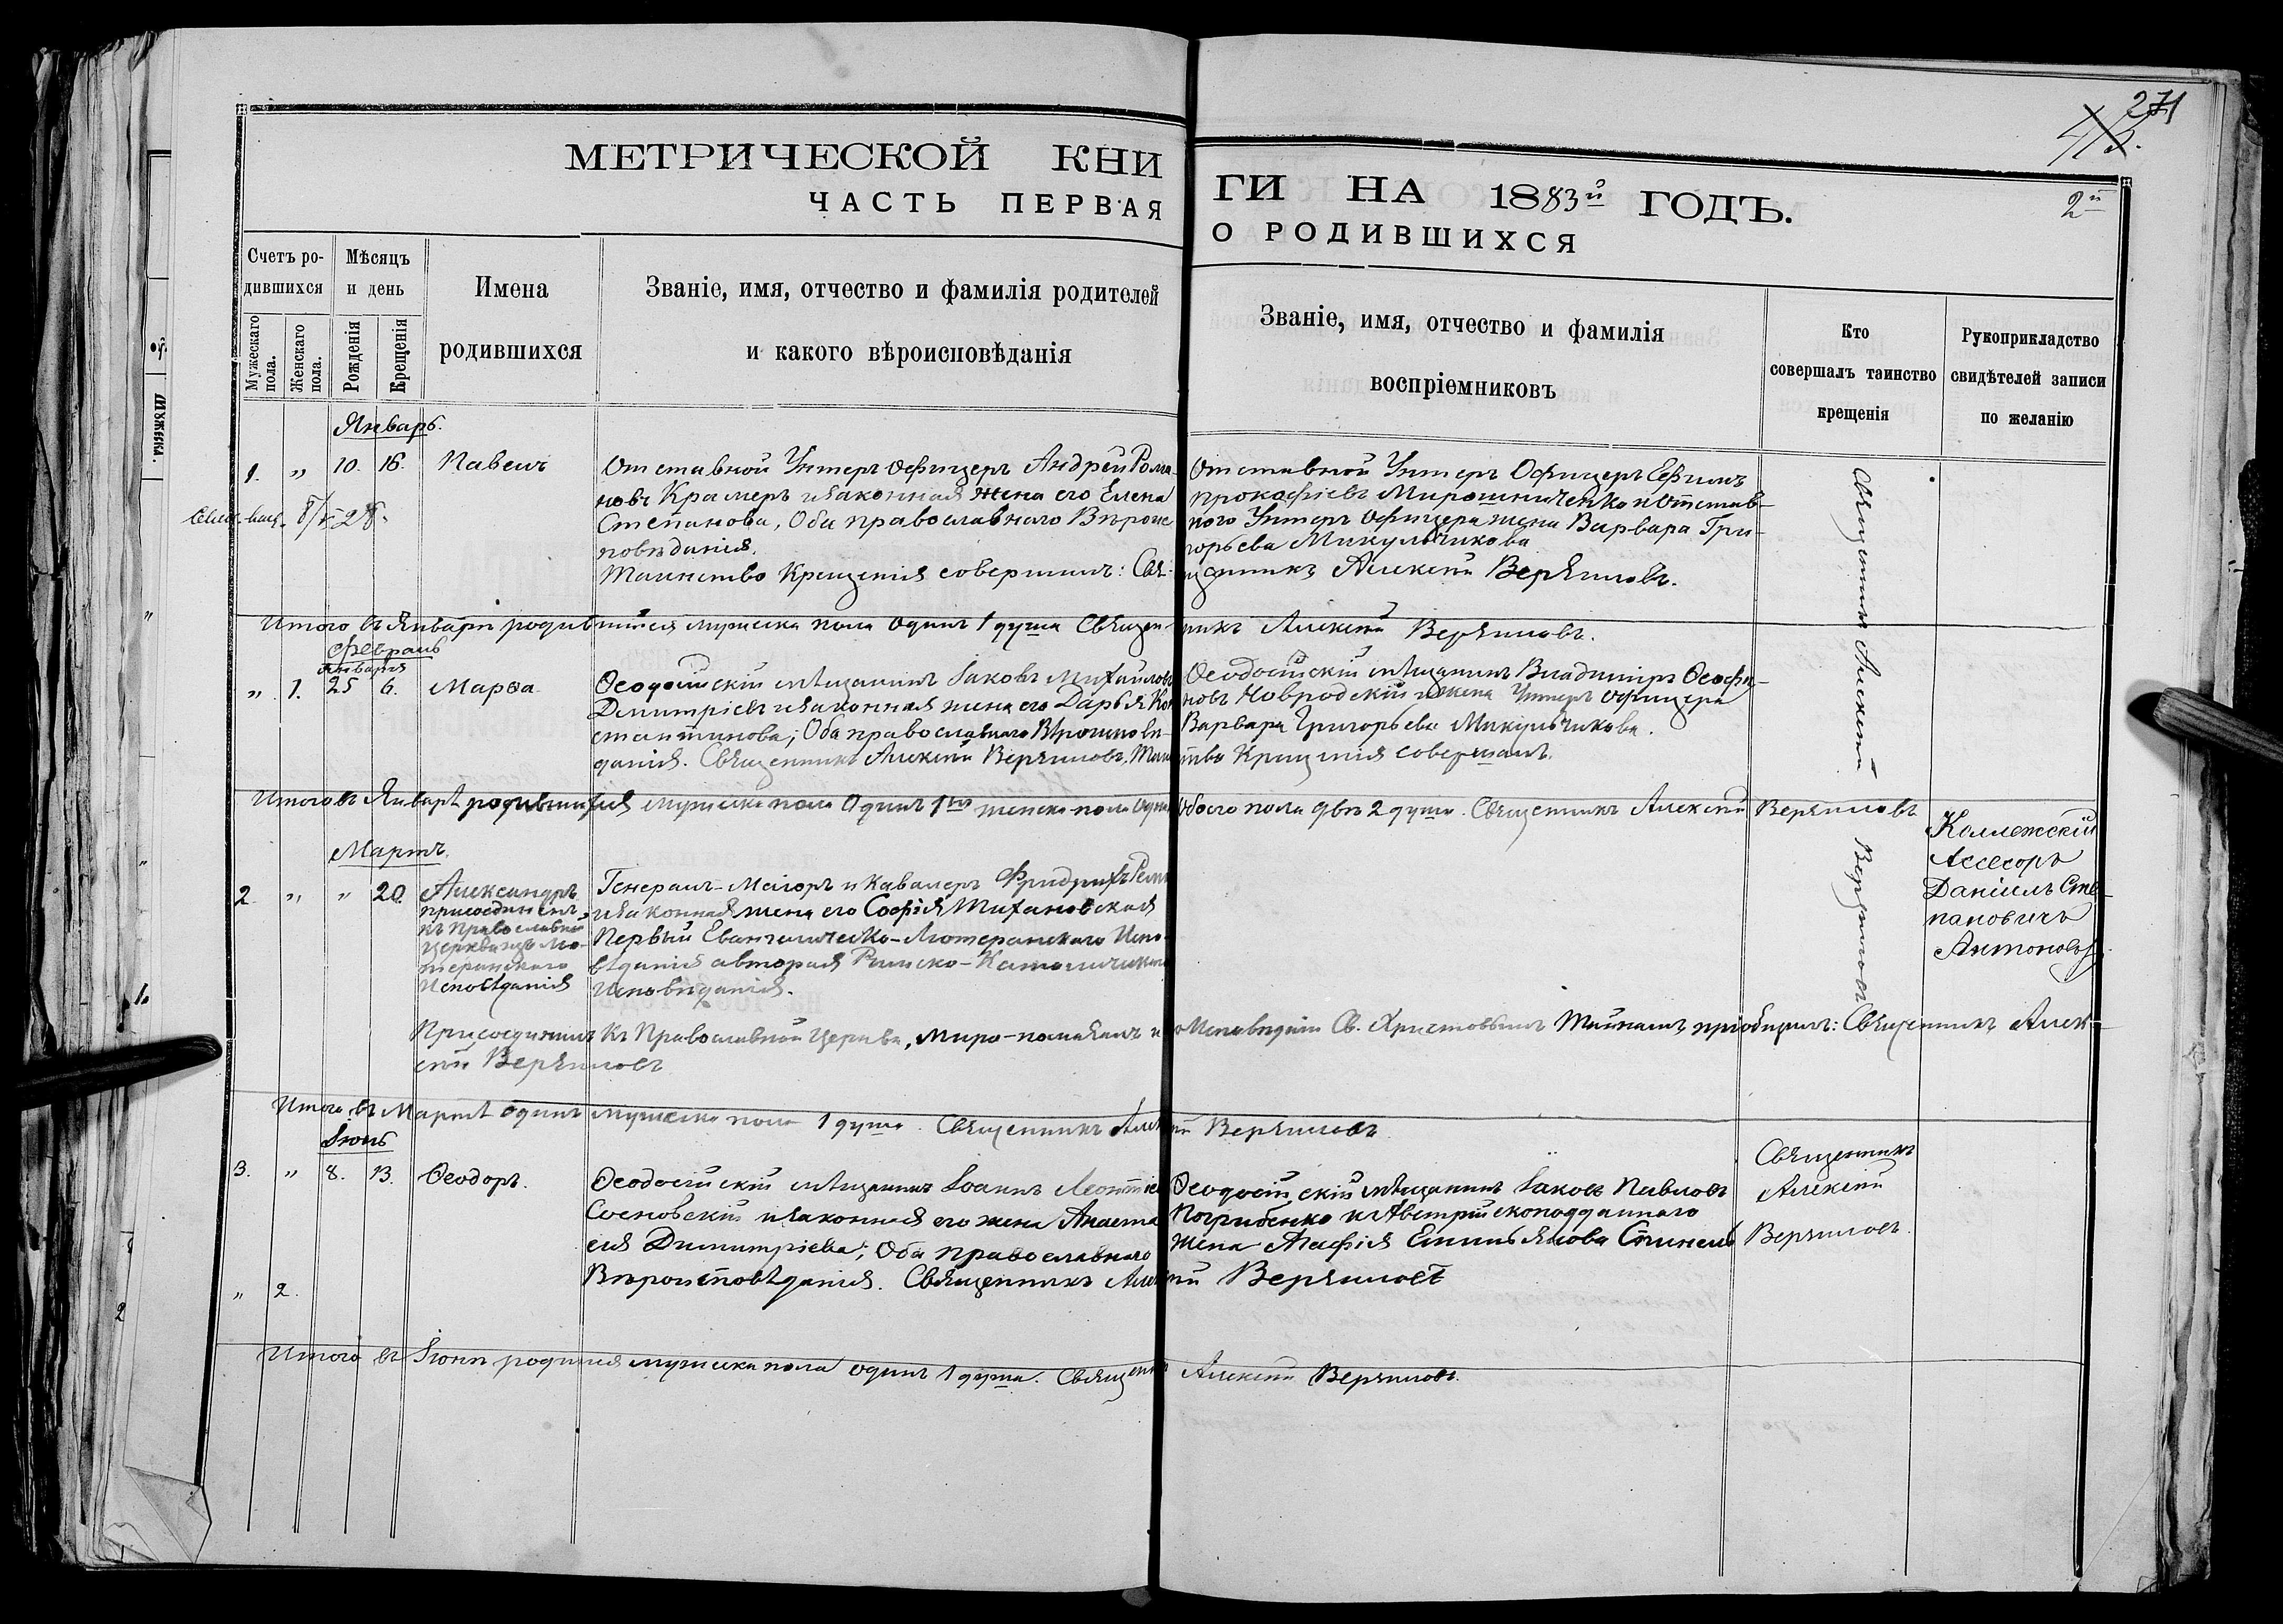 271
4/3.
МЕТРИЧЕСКОЙ КНИ
ГИ НА 1883й ГОДЪ.
2й
ЧАСТЬ ПЕРВАЯ
О РОДИВШИХСЯ
Счетъ ро-
дившихся
Мужескаго
пола.
Женскаго
пола.
Мѣсяцъ
и день
Рожденія
Крещенія
Имена
родившихся
Званіе, имя, отчество и фамилія родителей
и какого вѣроисповѣданія
Званіе, имя, отчество и фамилія
воспріемниковъ
Кто
совершалъ таинство
крещенія
Рукоприкладство
свидѣтелей записи
по желанію
Январь.
1. „ 10. 16. Павелъ
Отставной Унтеръ Офицеръ Андрей Рома-
новъ Крамеръ и законная жена его Елена
Степанова, Оба православнаго Вѣроис
повѣданія.
Таинство Крещенія совершилъ: Свя-
Отставной Унтеръ Офицеръ Ефимъ
Прокофіевъ Мирошниченко и Отстав-
ного Унтеръ Офицера жена Варвара Гри-
горьева Микульчикова
щенникъ Алексѣй Веряиловъ.
Священникъ Алексѣй Веряиловъ
Итого въ Январѣ родившійся мужеска пола одинъ 1 душа Священникъ Алексѣй Веряиловъ.
Февраль
Января
„ 1. 25 6. Марѳа
Ѳеодосійскій мѣщанинъ Іаковъ Михайловъ
Димитріевъ и законная жена его Дарья Кон
стантинова; Оба православнаго Вѣроисповѣ-
данія. Священникъ Алексѣй Веряиловъ, Таин
Ѳеодосійскій мѣщанинъ Владиміръ Ѳеофа-
новъ Новродскій и жена Унтеръ Офицера
Варвара Григорьева Микульчикова.
ство Крещенія совершалъ.
Итого въ Январѣ родившихся мужеска пола Одинъ 1го женска пола Одна Обоего пола двѣ 2 души. Священникъ Алексѣй Веряиловъ
Мартъ.
2. „ „ 20. Александръ
присоединенъ
къ Православной
Церкви изъ Лю-
теранскаго
Исповѣданія
Генералъ-Маіоръ и Кавалеръ Фридрихъ
и законная жена его Софія Тихановская
Первый Евангелическо-Лютеранскаго Испо-
вѣданія а вторая Римско-Католическаго
Исповѣданія.
Коллежскій
Ассесоръ
Даніилъ Сте-
пановичъ
Антоновъ
Присоединилъ Къ Православной Церкви, миро-помазалъ и Исповѣдію Св. Христовымъ Тайнамъ пріобщилъ: Священникъ Алек-
сѣй Веряиловъ
Итого въ Мартѣ одинъ мужеска пола 1 душа. Священникъ Алексѣй Веряиловъ
Іюнь
3. „ 8. 13. Ѳеодоръ.
Ѳеодосійскій мѣщанинъ Іоаннъ Леонтіев
Сосновскій и законная его жена Анаста
сія Димитріева; Оба православнаго
Вѣроисповѣданія. Священникъ Алек
Ѳеодосійскій мѣщанинъ Іаковъ Павловъ
Погрибенко и Австрійскоподданнаго
жена Агафія Емильянова
сѣй Веряиловъ
Священникъ
Алексѣй
Веряиловъ.
„ 2.
Итого въ Іюнѣ родился мужеска пола одинъ 1 душа. Священникъ Алексѣй Веряиловъ.